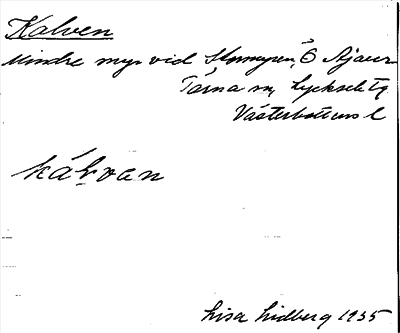 Kalven
Mindre myr vid Stormyren, Ö Ajaur
Tärna sn, Lycksele tg
Västerbottens l
kálvan
Lisa Lidberg 1935